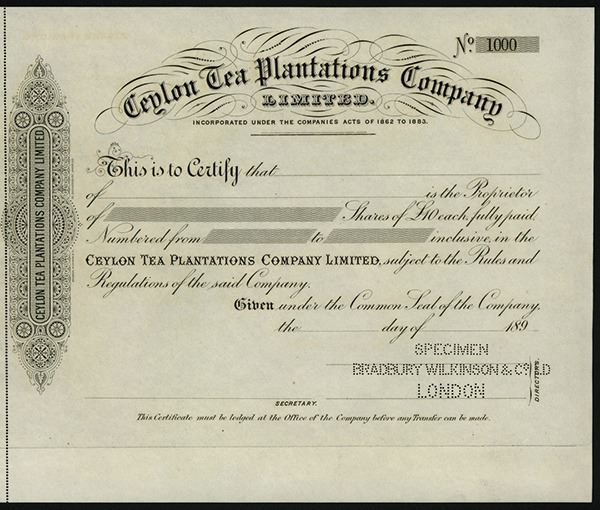 No. 1000
Ceylon Tea Plantations Company
LIMITED.
INCORPORATED UNDER THE COMPANIES ACTS OF 1862 TO 1883.
This is to Certify that
of is the Proprietor
of Shares of £10 each, fully paid,
Numbered from to inclusive, in the
CEYLON TEA PLANTATIONS COMPANY LIMITED, subject to the Rules and
Regulations of the said Company.
Given under the Common Seal of the Company,
the day of 189
SPECIMEN
BRADBURY WILKINSON & Co LD
LONDON
DIRECTORS.
SECRETARY.
This Certificate must be lodged at the Office of the Company before any Transfer can be made.
CEYLON TEA PLANTATIONS COMPANY LIMITED